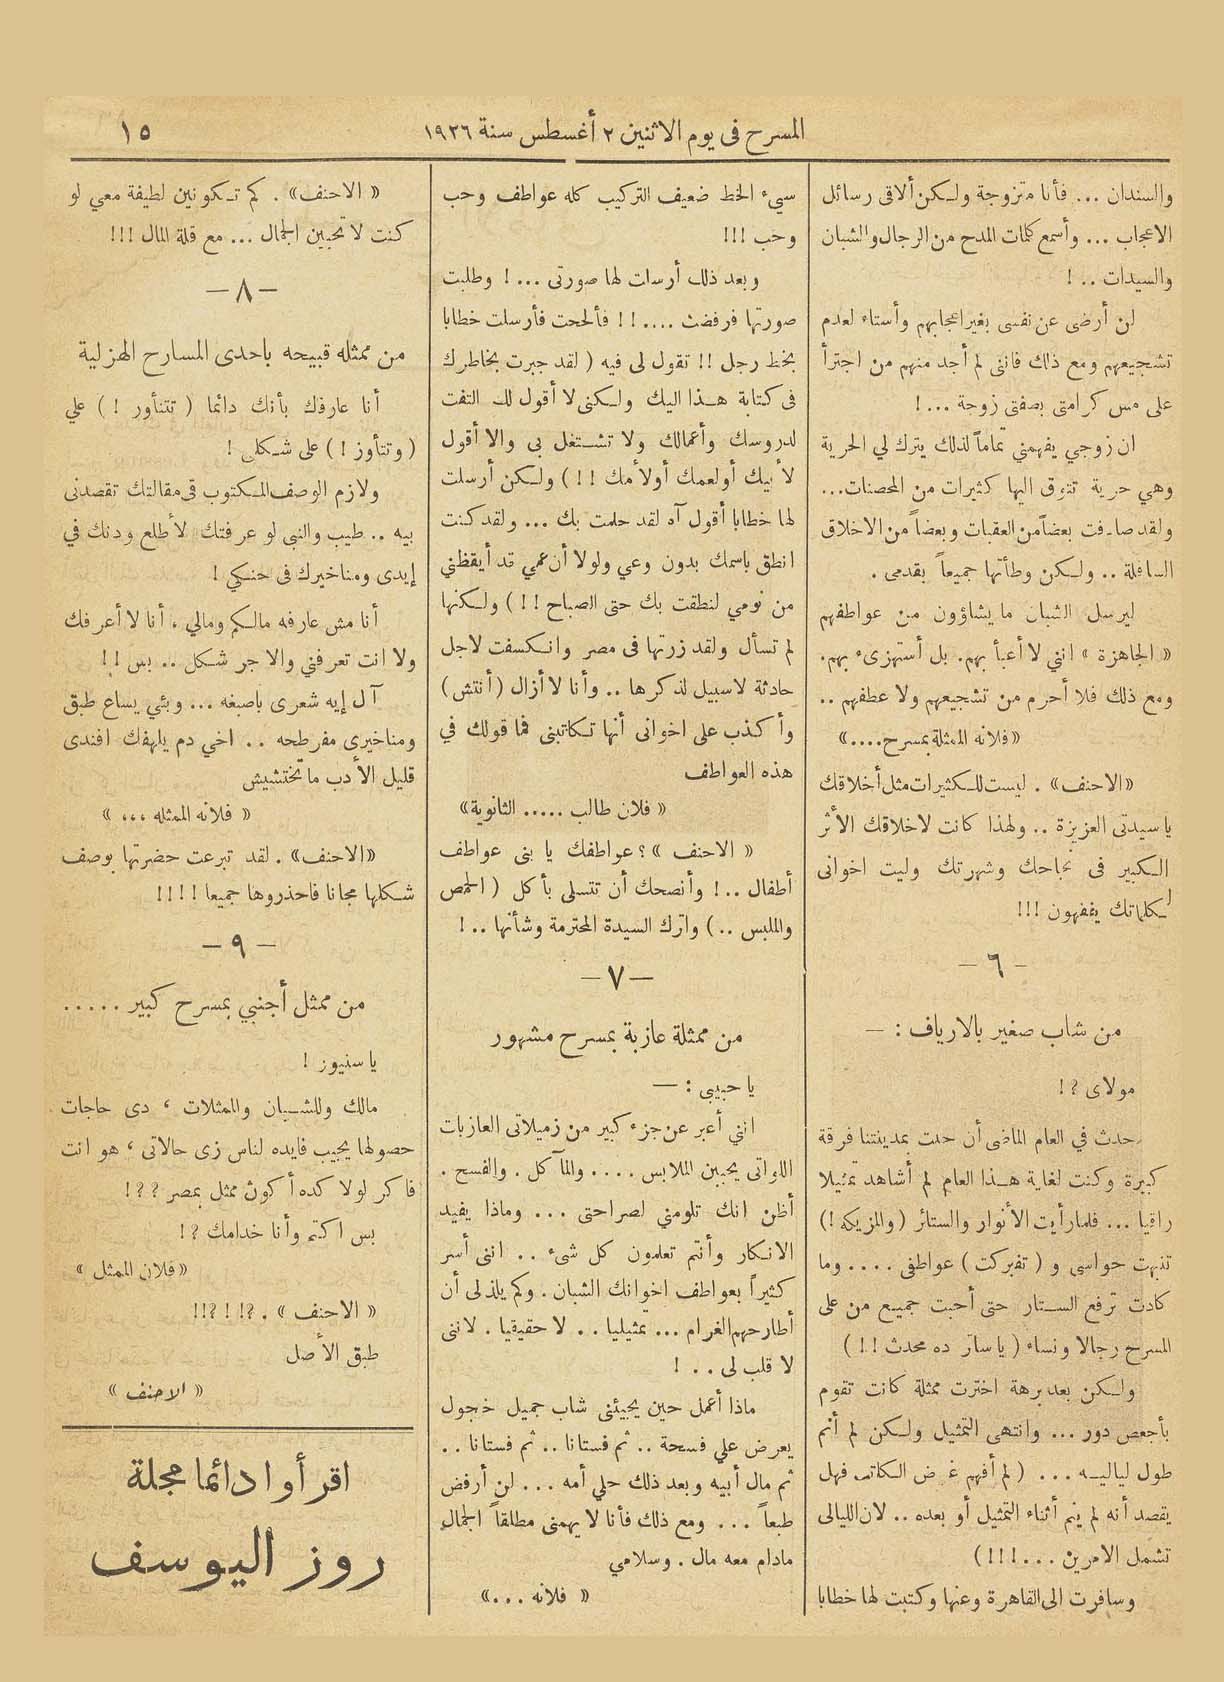 المسرح فى يوم الاثنين ٢ أغسطس سنة ١٩٢٦
١٥
والسندان ... فأنا متزوجة ولكن ألاقى رسائل
الاعجاب ... وأسمع كلمات المدح من الرجال والشبان
والسيدات .. !
لن أرضى عن نفسى بغير اعجابهم وأستاء لعدم
تشجيعهم ومع ذلك فاننى لم أجد منهم من اجترأ
على مس كرامتى بصفتى زوجة ... !
ان زوجي يفهمني تماماً لذلك يترك لي الحرية
وهي حرية تتوق اليها كثيرات من المحصنات...
ولقد صادفت بعضاً من العقبات وبعضاً من الاخلاق
السافلة .. ولكن وطأتها جميعاً بقدمى .
ليرسل الشبان ما يشاؤون من عواطفهم
« الجاهزة » انني لا أعبأ بهم. بل أستهزىء بهم.
ومع ذلك فلا أحرم من تشجيعهم ولا عطفهم ..
«فلانه الممثلة بمسرح....»
«الاحنف» . ليست للكثيرات مثل أخلاقك
يا سيدتى العزيزة .. ولهذا كانت لاخلاقك الأثر
الكبير فى نجاحك وشهرتك وليت اخوانى
لكلماتك يفقهون !!!
— ٦ —
من شاب صغير بالارياف : —
مولاى ؟ !
حدث في العام الماضى أن حلت بمدينتنا فرقة
كبيرة وكنت لغاية هذا العام لم أشاهد تمثيلا
راقيا ... فلما رأيت الأنوار والستائر (والمزيكه !)
تنبهت حواسى و ( تفبركت ) عواطفى .... وما
كادت ترفع الستار حتى أحببت جميع من على
المسرح رجالا ونساء ( يا ساتر ده محدث !! )
ولكن بعد برهة اخترت ممثلة كانت تقوم
بأجعص دور ... وانتهى التمثيل ولكن لم أنم
طول لياليه ... ( لم أفهم غرض الكاتب فهل
يقصد أنه لم ينم أثناء التمثيل أو بعده .. لان الليالى
تشمل الامرين ...!!! )
وسافرت الى القاهرة وعنها وكتبت لها خطابا
سيىء الخط ضعيف التركيب كله عواطف وحب
وحب !!!
وبعد ذلك أرسلت لها صورتى ... ! وطلبت
صورتها فرفضت .... !! فألححت فأرسلت خطابا
بخط رجل !! تقول لى فيه ( لقد جبرت بخاطرك
فى كتابة هذا اليك ولكنى لا أقول لك التفت
لدروسك وأعمالك ولا تشتغل بى والا أقول
لأبيك أو لعمك أو لأمك !! ) ولكن أرسلت
لها خطابا أقول آه لقد حلمت بك ... ولقد كنت
انطق باسمك بدون وعي ولولا أن عمي قد أيقظني
من نومي لنطقت بك حتى الصباح !! ) ولكنها
لم تسأل ولقد زرتها فى مصر وانكسفت لاجل
حادثة لا سبيل لذكرها .. وأنا لا أزال ( أنتش )
وأكذب على اخوانى أنها تكاتبنى فما قولك في
هذه العواطف
« فلان طالب ..... الثانوية»
« الاحنف »؟ عواطفك يا بنى عواطف
أطفال ..! وأنصحك أن تتسلى بأكل ( الحمص
والملبس .. ) واترك السيدة المحترمة وشأنها .. !
— ٧ —
من ممثلة عازبة بمسرح مشهور
يا حبيبى : —
انني أعبر عن جزء كبير من زميلاتى العازبات
اللواتى يحببن الملابس .... والمآكل . والفسح .
أظن انك تلومني لصراحتى ... وماذا يفيد
الانكار وأنتم تعلمون كل شىء .. اننى أسر
كثيراً بعواطف اخوانك الشبان . وكم يلذ لى أن
أطارحهم الغرام ... تمثيليا .. لا حقيقيا . لاننى
لا قلب لى .. !
ماذا أعمل حين يجيئنى شاب جميل خجول
يعرض علي فسحة .. ثم فستانا .. ثم فستانا ..
ثم مال أبيه وبعد ذلك حلي أمه ... لن أرفض
طبعاً ... ومع ذلك فأنا لا يهمنى مطلقاً الجمال
مادام معه مال . وسلامي
« فلانه ...»
« الاحنف» . كم تكونين لطيفة معي لو
كنت لا تحبين الجمال ... مع قلة المال !!!
— ٨ —
من ممثله قبيحه باحدى المسارح الهزلية
أنا عارفك بأنك دائما ( تتنأور ! ) علي
( وتتأوز ! ) على شكلى !
ولازم الوصف المكتوب فى مقالتك تقصدنى
بيه .. طيب والنبى لو عرفتك لأطلع ودنك في
إيدى ومناخيرك فى حنكي !
أنا مش عارفه مالكم ومالي ، أنا لا أعرفك
ولا انت تعرفني والا جر شكل .. بس !!
آل إيه شعرى باصبغه ... وبئي يساع طبق
ومناخيرى مفرطحه .. اخي دم يلهفك افندى
قليل الأدب ما تختشيش
« فلانه الممثله ،،، »
«الاحنف» . لقد تبرعت حضرتها بوصف
شكلها مجانا فاحذروها جميعا !!!!
— ٩ —
من ممثل أجنبي بمسرح كبير .....
يا سنيور !
مالك وللشبان والممثلات ، دى حاجات
حصولها يجيب فايده لناس زى حالاتى ، هو انت
فاكر لولا كده أكون ممثل بمصر ؟؟!
بس اكتم وأنا خدامك ؟!
«فلان الممثل »
« الاحنف» . ؟!!؟!!
طبق الأصل
« الاحنف »
اقرأوا دائما مجلة
روز اليوسف